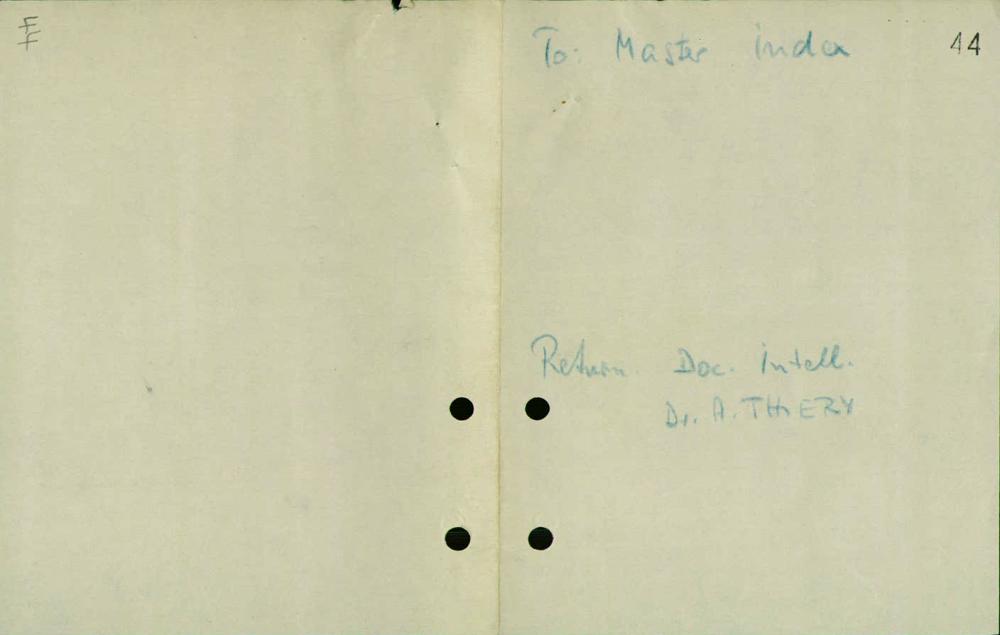 To: Master index
44
Return. Doc. Intell.
Dr. A. THIERY